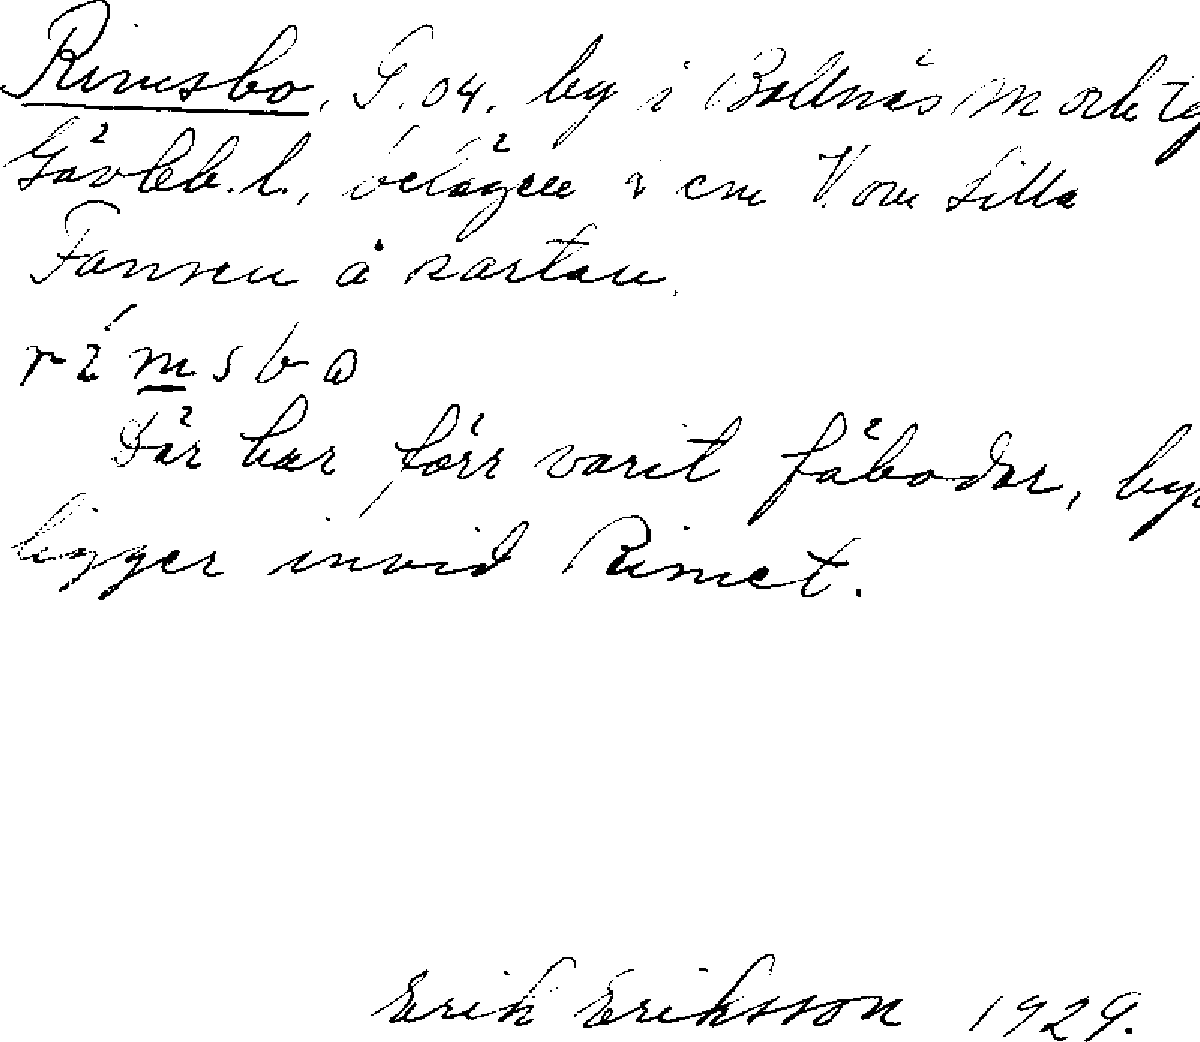 Rimsbo, G. 04. by i Bollnäs M och tg
Gävleb. l., belägen 2 cm V. om Lilla
Fannen å kartan.
rimsbo
Där har förr varit fäbodar, by
ligger invid Rimet.
Erik Eriksson 1929.